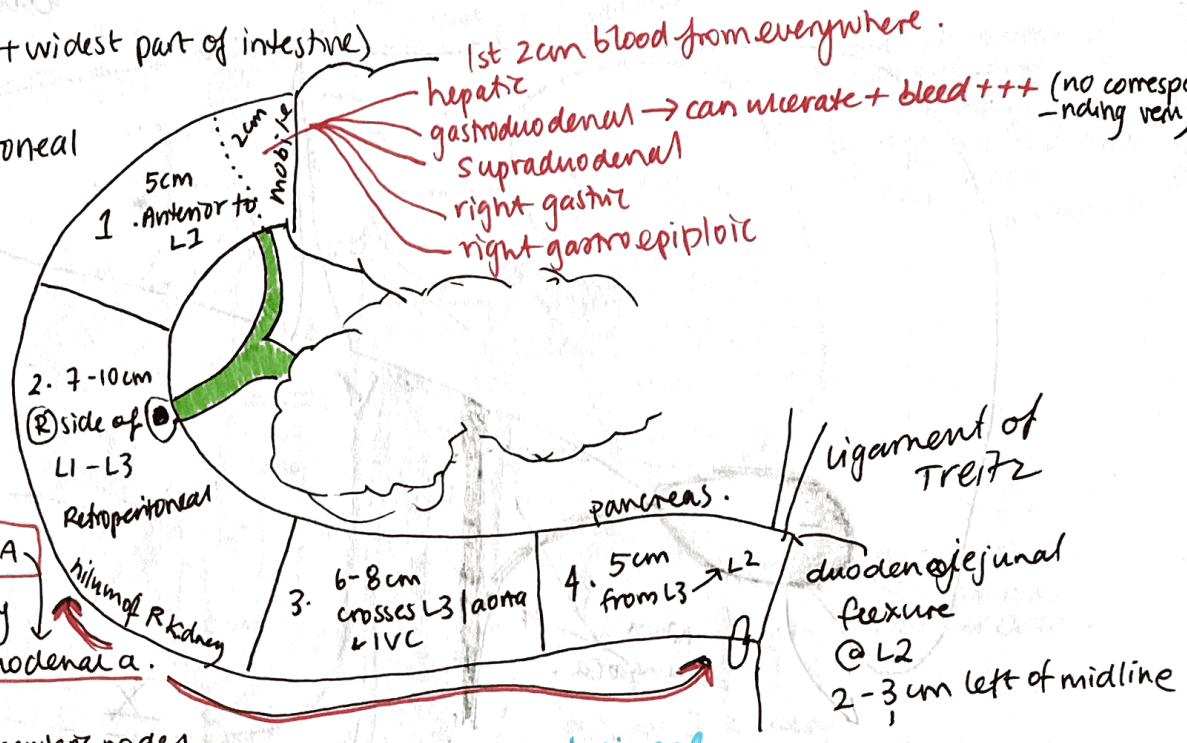 + widest part of intestine)
1st 2cm blood from everywhere.
hepatic
gastroduodenal → can ulcerate + bleed +++ (no correspo
-nding vein)
supraduodenal
right gastric
right gastroepiploic
oneal
2cm
mobile
5cm
1 .Anterior to
L1
2. 7-10cm
(R) side of
L1-L3
Retroperitoneal
hilum of R kidney
pancreas.
Ligament of
Treitz
3. 6-8cm
crosses L3 / aorta
+ IVC
4. 5cm
from L3 → L2
duodenojejunal
flexure
@ L2
2-3cm left of midline
A
y
odenal a.
nodes